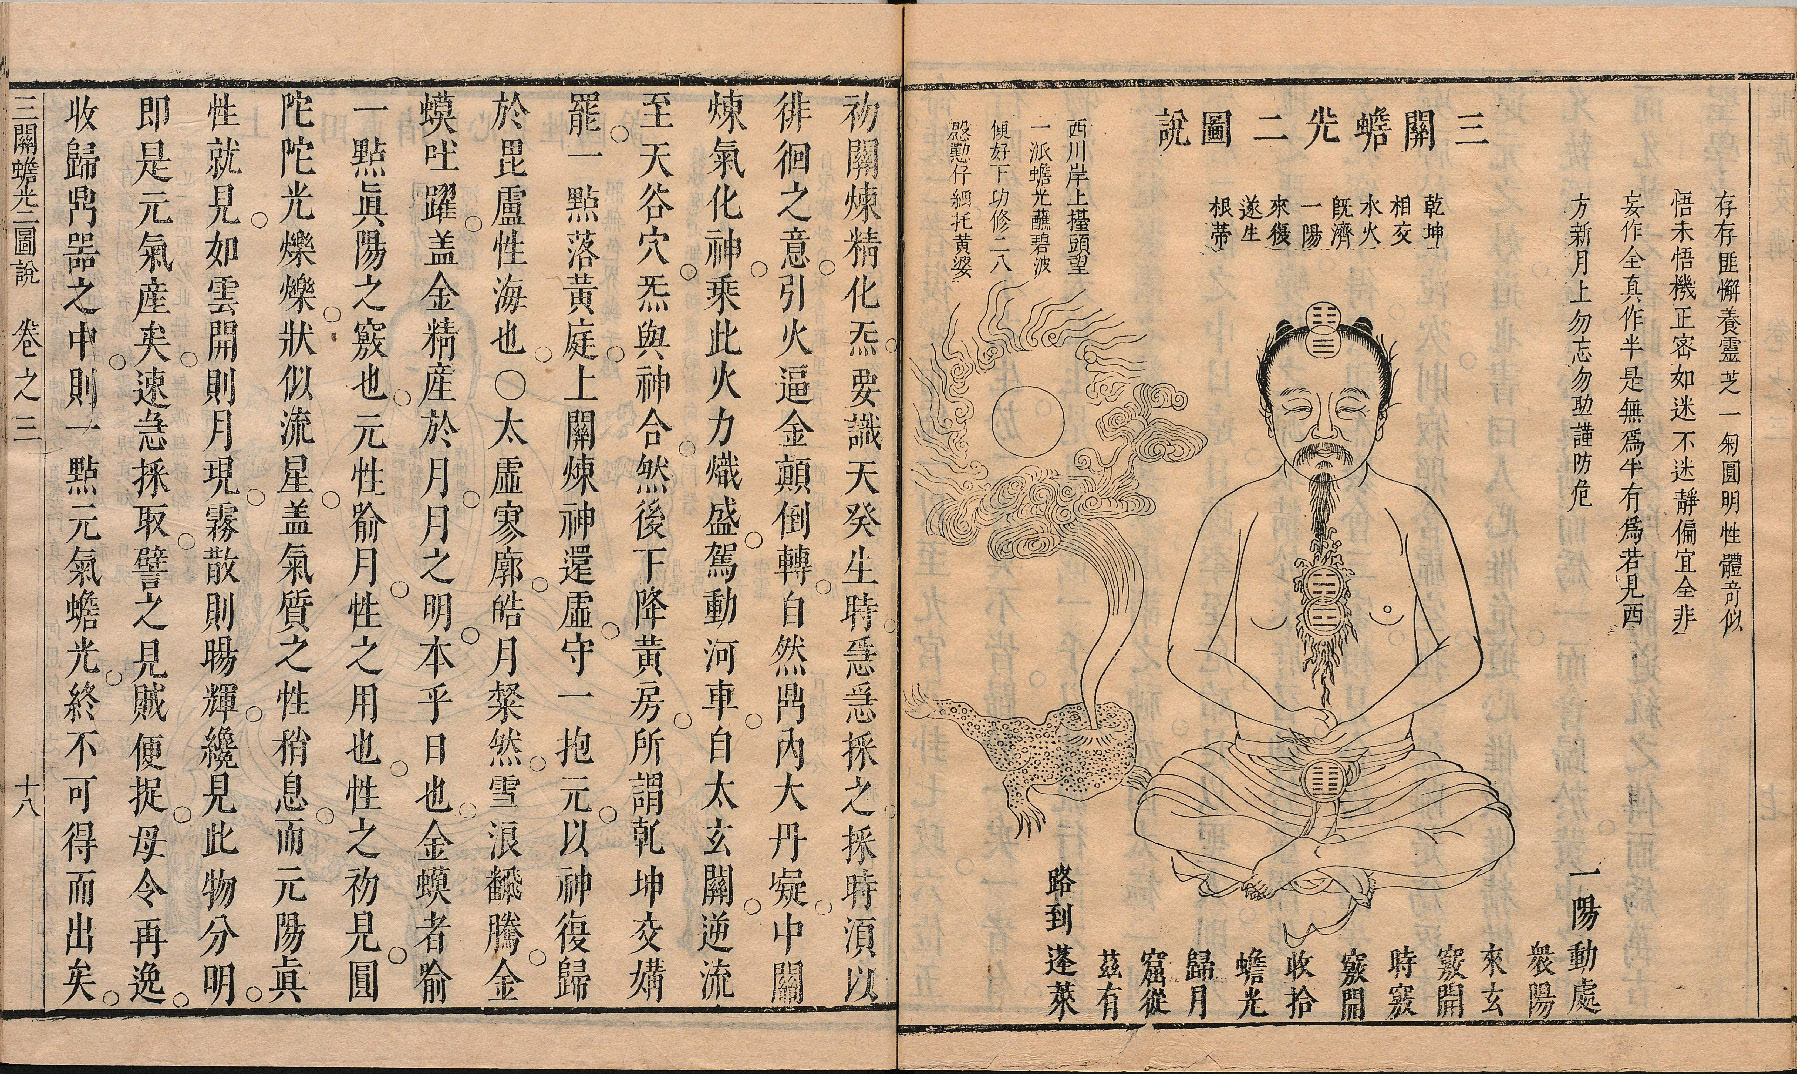 三關蟾光二圖說
存存匪懈養靈芝一匊圓明性體奇似
悟未悟機正密如迷不迷靜偏宜全非
妄作全真作半是無爲半有爲若見西
方新月上勿忘勿助謹防危
乾坤
相交
水火
既濟
一陽
來復
遂生
根蒂
西川岸上擡頭望
一派蟾光蘸碧波
傾好下功修二八
慇懃仔細托黃婆
一陽動處
眾陽
來玄
竅開
時竅
竅開
收拾
蟾光
歸月
窟從
茲有
路到蓬萊
初關煉精化炁要識天癸生時急急採之採時須以
徘徊之意引火逼金顛倒轉自然鼎內大丹凝中關
煉氣化神乘此火力熾盛駕動河車自太玄關逆流
至天谷穴炁與神合然後下降黃房所謂乾坤交媾
罷一點落黃庭上關煉神還虛守一抱元以神復歸
於毘盧性海也○太虛寥廓皓月粲然雪浪飜騰金
蟆吐躍盖金精產於月月之明本乎日也金蟆者喻
一點真陽之竅也元性喻月性之用也性之初見圓
陀陀光爍爍狀似流星盖氣質之性稍息而元陽真
性就見如雲開則月現霧散則暘輝纔見此物分明
即是元氣產矣速急採取譬之見賊便捉毋令再逸
收歸鼎器之中則一點元氣蟾光終不可得而出矣
三關蟾光二圖說 卷之三 十八